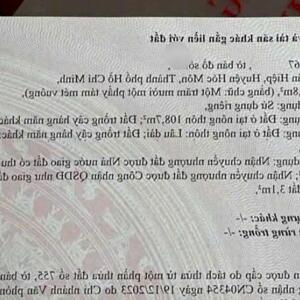 và tài sản khác gắn liền với đất
67 , tờ bản đồ số
n Hiệp, Huyện Hóc Môn, Thành phố Hồ Chí Minh,
,8m², (bằng chữ: Một trăm mười một phẩy tám mét vuông),
dụng: Sử dụng riêng,
dụng: Đất ở tại nông thôn 108,7m²; Đất trồng cây hàng năm khác
dụng: Đất ở tại nông thôn: Lâu dài; Đất trồng cây hàng năm khác:
dụng: Nhận chuyển nhượng đất được Nhà nước giao đất có thu
²; Nhận chuyển nhượng đất được Công nhận QSDĐ như giao đất
đất 3,1m².
dựng khác: -/-
rừng trồng: -/-
-/-
đất được cấp do tách thửa từ một phần thửa đất số 755, tờ bản
nhận số CN04354 ngày 19/12/2023 do Chi nhánh Văn phòng